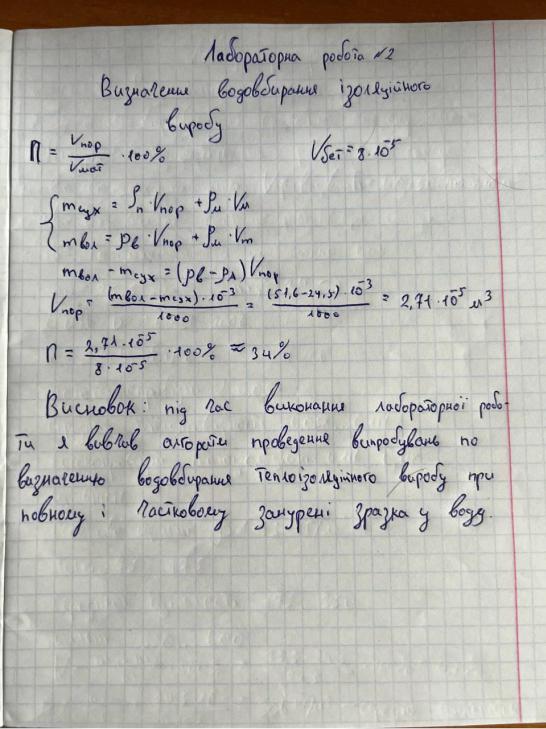 Лабораторна робота №2
Визначення водовбирання ізоляційного
виробу
П = Vпор / Vмат · 100%   Vбет = 8·10⁻⁵
mсух = ρп · Vпор + ρм · Vм
mвол = ρв · Vпор + ρм · Vm
mвол − mсух = (ρв − ρл) Vпор
Vпор = (mвол − mсух)·10⁻³ / 1000 = (51,6−24,5)·10⁻³ / 1000 = 2,71·10⁻⁵ м³
П = 2,71·10⁻⁵ / 8·10⁻⁵ · 100% ≈ 34%
Висновок: під час виконання лабораторної робо-
ти я вивчав алгоритм проведення випробувань по
визначенню водовбирання теплоізоляційного виробу при
повному і частковому занурені зразка у воду.